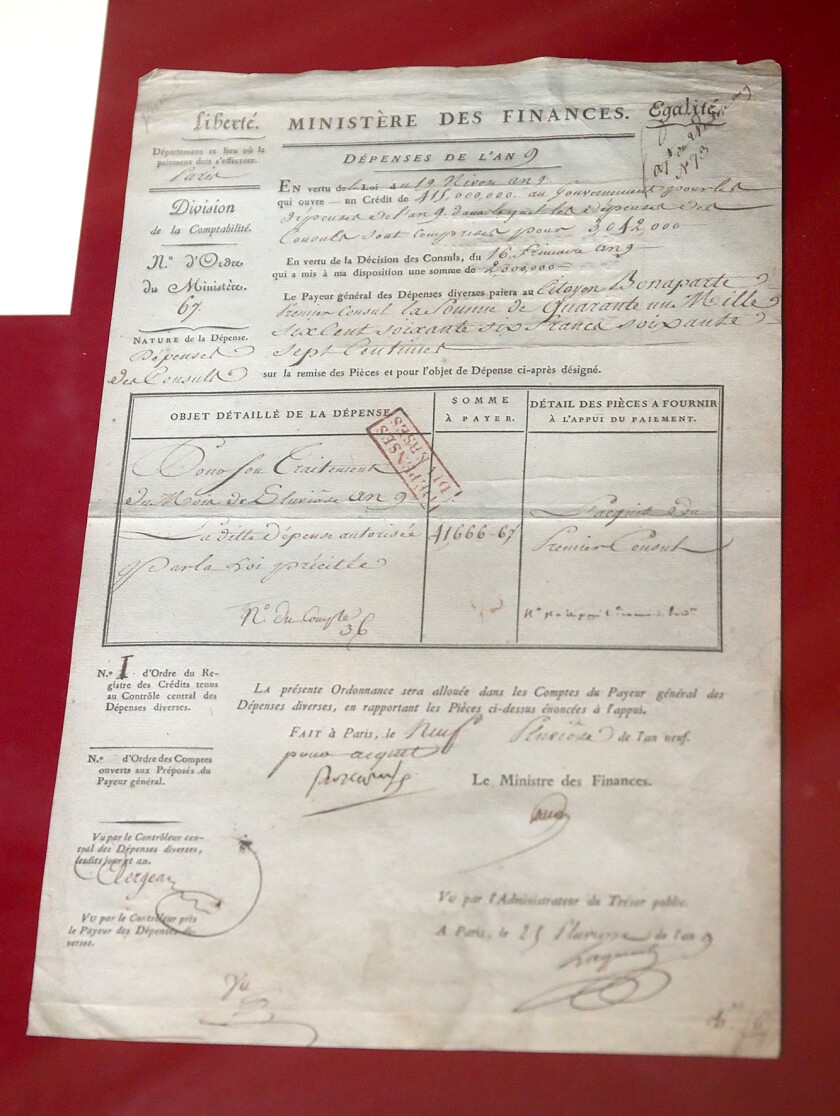 Liberté.
MINISTÈRE DES FINANCES.
Egalité
Département et lieu où le
paiement doit s'effectuer.
Paris
DÉPENSES DE L'AN 9
N.° 73
EN vertu de la Loi du 19 Nivose an 9
qui ouvre un Crédit de 415,000,000. au Gouvernement pour les
dépenses de l'an 9. dans lequel les dépenses des
Consuls sont comprises pour 3,042,000
Division
de la Comptabilité.
En vertu de la Décision des Consuls, du 16 Frimaire an 9
qui a mis à ma disposition une somme de 2,500,000
N.° d'Ordre
du Ministère.
67.
Le Payeur général des Dépenses diverses paiera au Citoyen Bonaparte
Premier Consul la Somme de Quarante un Mille
Six Cent soixante six francs soixante
sept Centimes
NATURE de la Dépense.
Dépenses
des Consuls
sur la remise des Pièces et pour l'objet de Dépense ci-après désigné.
OBJET DÉTAILLÉ DE LA DÉPENSE
SOMME
À PAYER.
DÉTAIL DES PIÈCES A FOURNIR
À L'APPUI DU PAIEMENT.
DÉPENSES
DIVERSES
Pour son Traitement
du Mois de Pluviôse an 9
La ditte dépense autorisée
par la Loi précitée
N.° du Compte
36
41,666-67
L'acquit du
Premier Consul
N.° I d'Ordre du Re-
gistre des Crédits tenus
au Contrôle central des
Dépenses diverses.
LA présente Ordonnance sera allouée dans les Comptes du Payeur général des
Dépenses diverses, en rapportant les Pièces ci-dessus énoncées à l'appui.
FAIT à Paris, le Neuf Pluviôse de l'an neuf.
pour acquit
N.° d'Ordre des Comptes
ouverts aux Préposés du
Payeur général.
Le Ministre des Finances.
Vu par le Contrôleur cen-
tral des Dépenses diverses,
lesdits jour et an.
Clergeau
Vu par l'Administrateur du Trésor public.
Vu par le Contrôleur près
le Payeur des Dépenses di-
verses.
A Paris, le 25 Pluviose de l'an 9